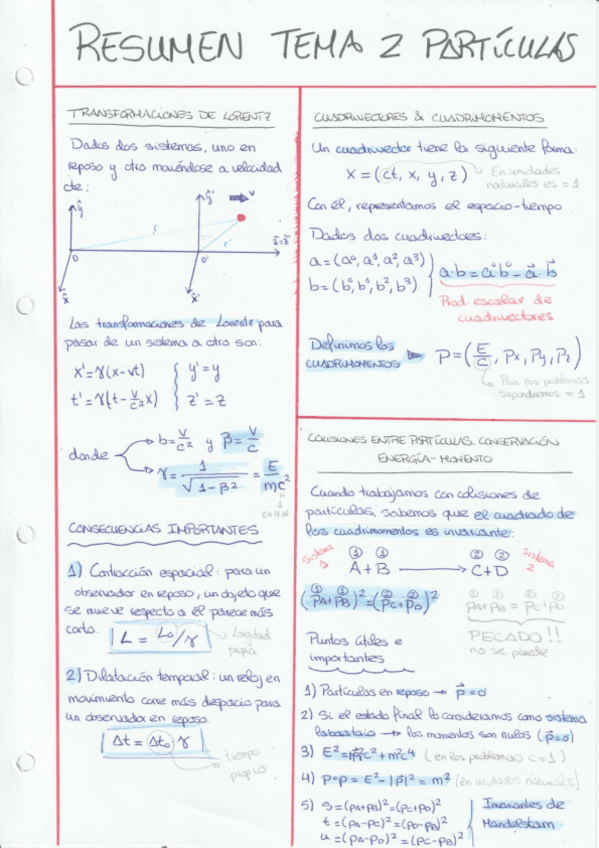 RESUMEN TEMA 2 PARTÍCULAS
TRANSFORMACIONES DE LORENTZ
Dados dos sistemas, uno en
reposo y otro moviéndose a velocidad
de:
ŷ ŷ' v
r r'
O O' ẑ=ẑ'
x̂ x̂'
Las transformaciones de Lorentz para
pasar de un sistema a otro son:
x'=γ(x-vt) y'=y
t'=γ(t-v/c² x) z'=z
donde b=v/c² y β=v/c
γ=1/√(1-β²)=E/mc²
CONSECUENCIAS IMPORTANTES
1) Contracción espacial: para un
observador en reposo, un objeto que
se mueve respecto a él parece más
corto.
L = L₀/γ longitud
propia
2) Dilatación temporal: un reloj en
movimiento corre más despacio para
un observador en reposo.
Δt = Δt₀ γ
tiempo
propio
CUADRIVECTORES & CUADRIMOMENTOS
Un cuadrivector tiene la siguiente forma:
x=(ct, x, y, z) En unidades
naturales es = 1
Con él, representamos el espacio-tiempo
Dados dos cuadrivectores:
a=(a⁰, a¹, a², a³)
b=(b⁰, b¹, b², b³)
a·b=a⁰b⁰-a⃗·b⃗
Prod. escalar de
cuadrivectores
Definimos los
CUADRIMOMENTOS P=(E/c, Px, Py, Pz)
Para los problemas
supondremos = 1
COLISIONES ENTRE PARTÍCULAS. CONSERVACIÓN
ENERGÍA-MOMENTO
Cuando trabajamos con colisiones de
partículas, sabemos que el cuadrado de
los cuadrimomentos es invariante:
sistema 1 ① ① ② ② sistema 2
A+B → C+D
① ① ② ②
(PA+PB)²=(PC+PD)²
① ① ② ②
PA+PB = PC+PD
PECADO!!
no se puede
Puntos útiles e
importantes
1) Partículas en reposo → p⃗=0
2) Si el estado final lo consideramos como sistema
laboratorio → los momentos son nulos (p⃗=0)
3) E²=|p⃗|²c²+m²c⁴ (en los problemas c=1)
4) P·P=E²-|p⃗|²=m² (en unidades naturales)
5) s=(PA+PB)²=(PC+PD)²
t=(PA-PC)²=(PD-PB)²
u=(PA-PD)²=(PC-PB)²
Invariantes de
Mandelstam